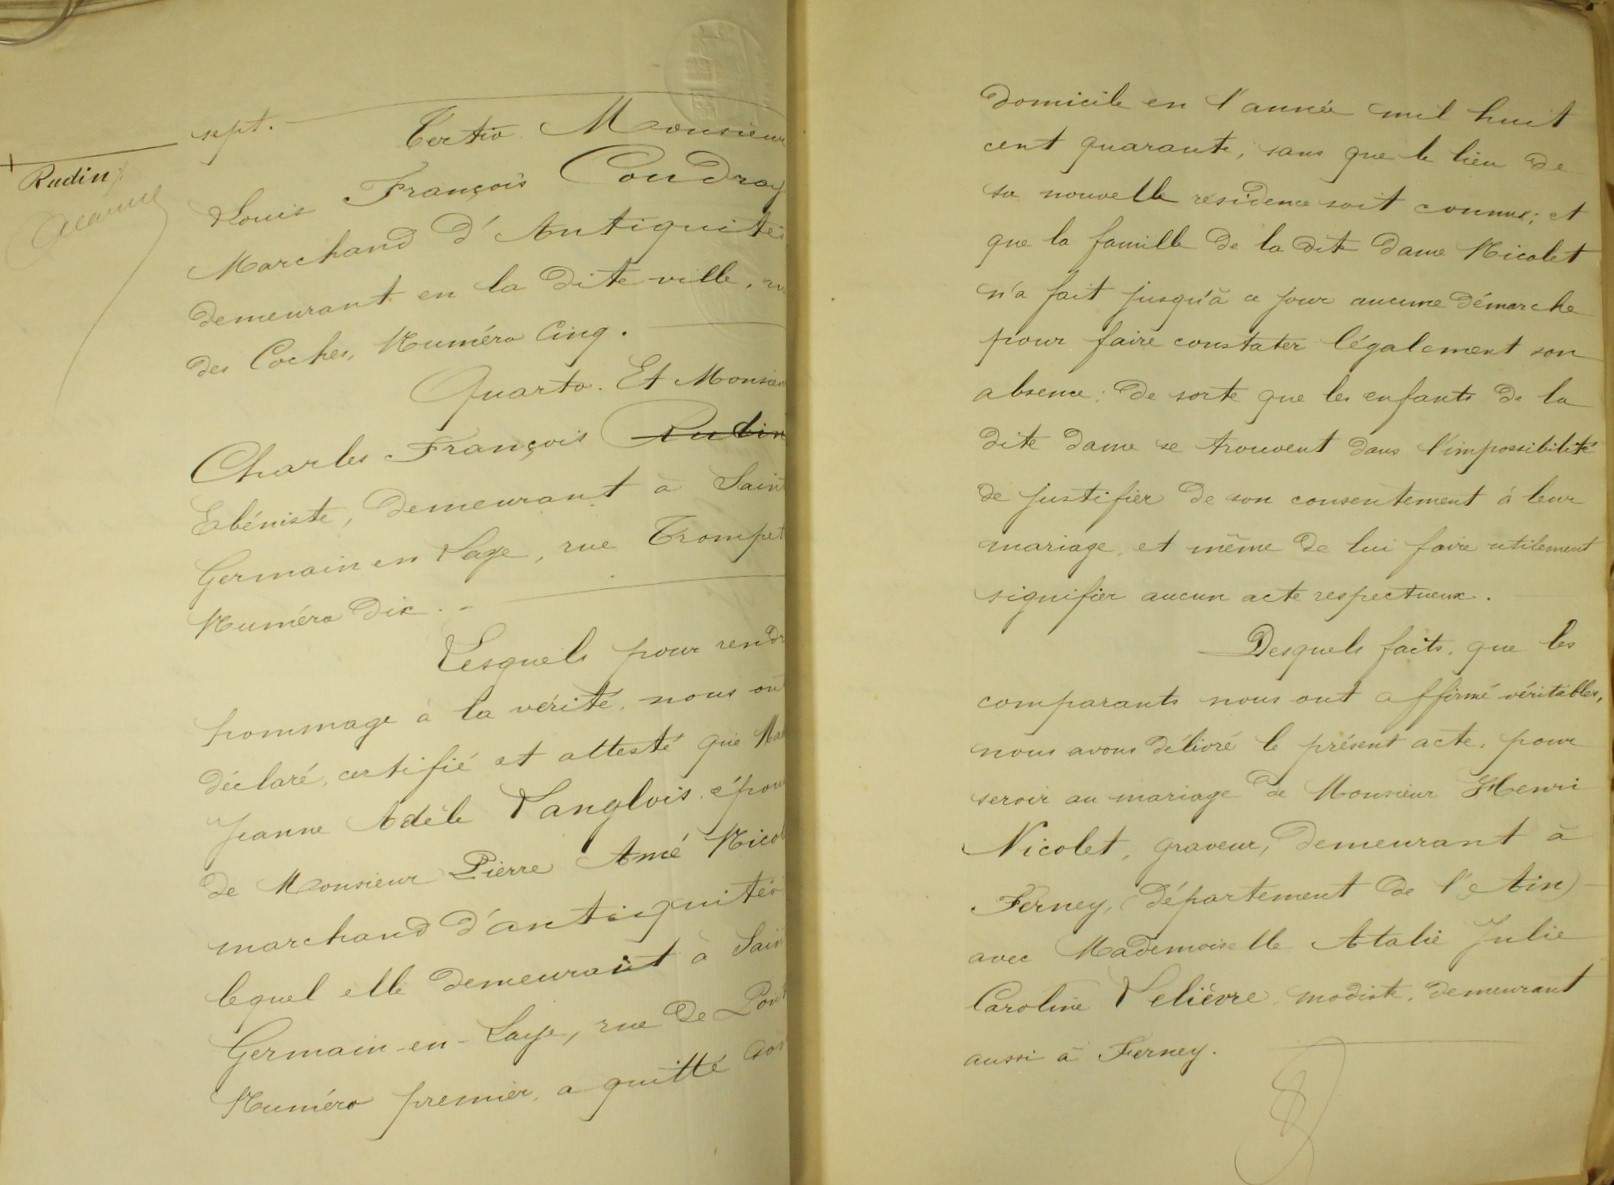 sept. Tertio Monsieur
Rudin
Louis François Coudray
Marchand d'Antiquités
demeurant en la dite ville, ru
des Coches, Numéro Cinq.
Quarto. Et Monsieu
Charles François Rudin
Ebéniste, demeurant à Saint
Germain en Laye, rue Trompet
Numéro Dix.
Lesquels pour rendr
hommage à la vérité, nous on
déclaré, certifié et attesté que Ma
Jeanne Adèle Langlois, épou
de Monsieur Pierre Amé Nicol
marchand d'antiquités
lequel elle demeurait à Sain
Germain-en-Laye, rue de
Numéro premier, a quitté son
domicile en l'année mil huit
cent quarante, sans que le lieu de
sa nouvelle résidence soit connue; et
que la famille de la dite dame Nicolet
n'a fait jusqu'à ce jour aucune démarche
pour faire constater légalement son
absence: de sorte que les enfants de la
dite dame se trouvent dans l'impossibilité
de justifier de son consentement à leur
mariage, et même de lui faire utilement
signifier aucun acte respectueux.
Desquels faits, que les
comparants nous ont affirmé véritables,
nous avons délivré le présent acte, pour
servir au mariage de Monsieur Henri
Nicolet, graveur, demeurant à
Ferney, (département de l'Ain)
avec Mademoiselle Atalie Julie
Caroline Lelièvre, modiste, demeurant
aussi à Ferney.